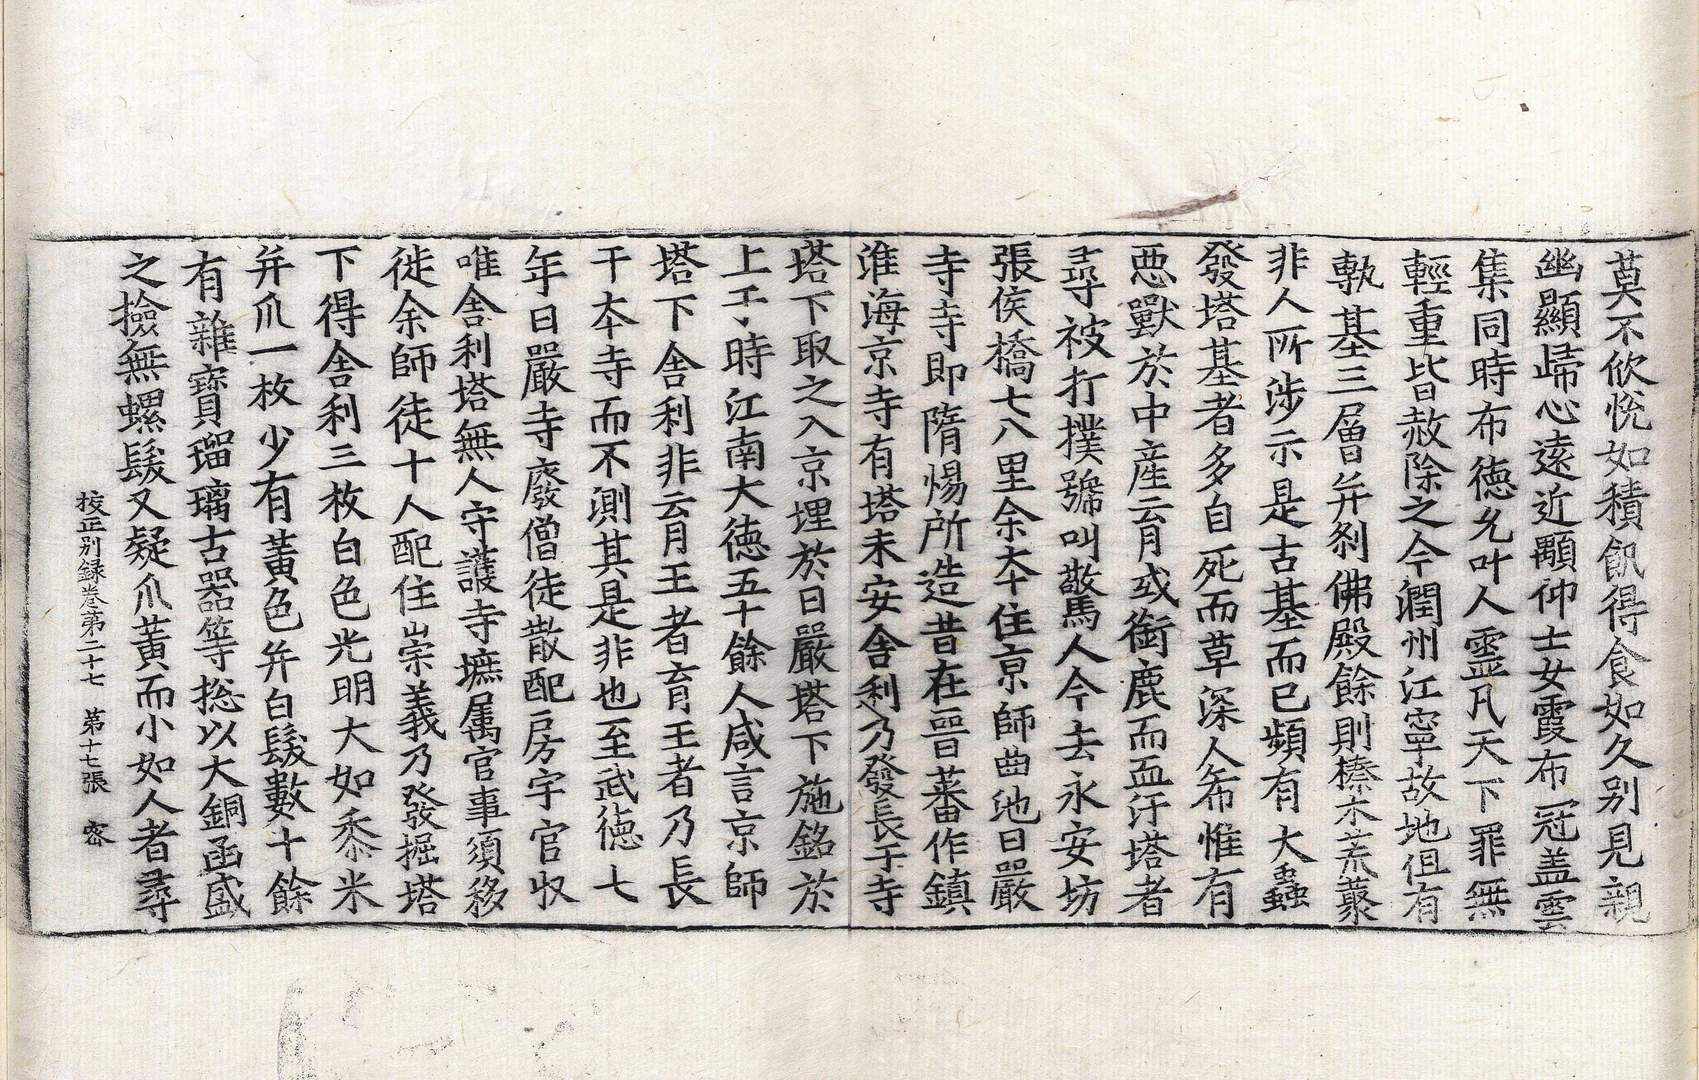 莫不欣悅如積飢得食如久别見親
幽顯歸心遠近顒仰士女霞布冠盖雲
集同時布德允叶人靈凡天下罪無
輕重皆赦除之今潤州江寧故地但有
塼基三層并剎佛殿餘則榛木荒藂
非人所涉示是古基而已頻有大蟲
發塔基者多自死而草深人希惟有
惡獸於中産育或銜鹿而血汙塔者
尋被打撲號叫驚人今去永安坊
張侯橋七八里余本住京師曲池日嚴
寺寺即隋煬所造昔在晉蕃作鎮
淮海京寺有塔未安舍利乃發長干寺
塔下取之入京埋於日嚴塔下施銘於
上于時江南大德五十餘人咸言京師
塔下舍利非育王者育王者乃長
干本寺而不測其是非也至武德七
年日嚴寺廢僧徒散配房宇官収
唯舍利塔無人守護寺墌属官事須移
徙余師徒十人配住崇義乃發掘塔
下得舍利三枚白色光明大如黍米
并爪一枚少有黄色并白髮數十餘
有雜寶瑠璃古器等捴以大銅函盛
之撿無螺髮又疑爪黄而小如人者尋
挍正别録卷第二十七　第十七張　密